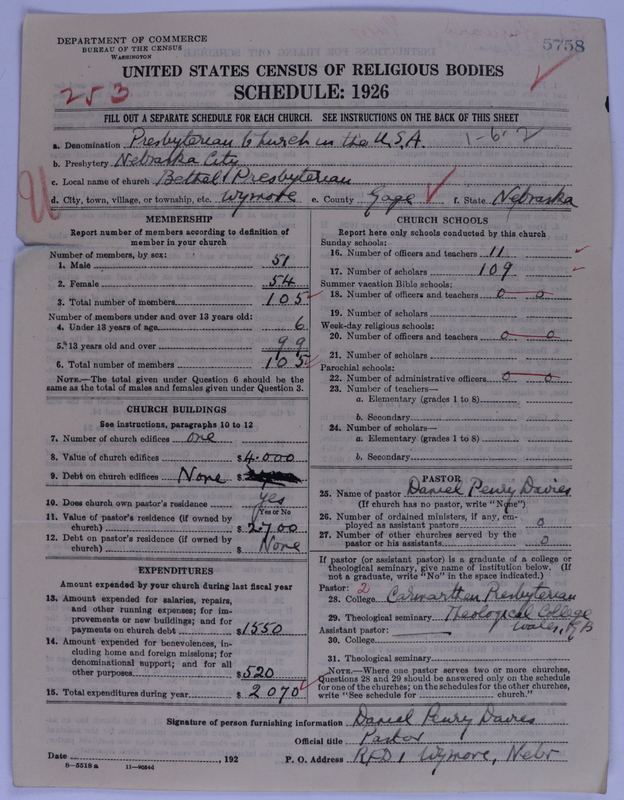 DEPARTMENT OF COMMERCE
BUREAU OF THE CENSUS
WASHINGTON
5758
UNITED STATES CENSUS OF RELIGIOUS BODIES
253
SCHEDULE: 1926
FILL OUT A SEPARATE SCHEDULE FOR EACH CHURCH. SEE INSTRUCTIONS ON THE BACK OF THIS SHEET
a. Denomination Presbyterian Church in the U.S.A. 1-6-2
b. Presbytery Nebraska City
c. Local name of church Bethel Presbyterian
d. City, town, village, or township, etc. Wymore e. County Gage f. State Nebraska
MEMBERSHIP
Report number of members according to definition of
member in your church
Number of members, by sex:
1. Male 51
2. Female 54
3. Total number of members 105
Number of members under and over 13 years old:
4. Under 13 years of age 6
5. 13 years old and over 99
6. Total number of members 105
NOTE.—The total given under Question 6 should be the
same as the total of males and females given under Question 3.
CHURCH BUILDINGS
See instructions, paragraphs 10 to 12
7. Number of church edifices one
8. Value of church edifices $4.000
9. Debt on church edifices None $
10. Does church own pastor's residence yes
Yes or No
11. Value of pastor's residence (if owned by
church) $2.700
12. Debt on pastor's residence (if owned by
church) $ None
EXPENDITURES
Amount expended by your church during last fiscal year
13. Amount expended for salaries, repairs,
and other running expenses; for im-
provements or new buildings; and for
payments on church debt $1550
14. Amount expended for benevolences, in-
cluding home and foreign missions; for
denominational support; and for all
other purposes $520
15. Total expenditures during year $2070
CHURCH SCHOOLS
Report here only schools conducted by this church
Sunday schools:
16. Number of officers and teachers 11
17. Number of scholars 109
Summer vacation Bible schools:
18. Number of officers and teachers 0 0
19. Number of scholars
Week-day religious schools:
20. Number of officers and teachers 0 0
21. Number of scholars
Parochial schools:
22. Number of administrative officers 0 0
23. Number of teachers—
a. Elementary (grades 1 to 8)
b. Secondary
24. Number of scholars—
a. Elementary (grades 1 to 8)
b. Secondary
PASTOR
25. Name of pastor Daniel Penry Davies
(If church has no pastor, write "None")
26. Number of ordained ministers, if any, em-
ployed as assistant pastors 0
27. Number of other churches served by the
pastor or his assistants 0
If pastor (or assistant pastor) is a graduate of a college or
theological seminary, give name of institution below. (If
not a graduate, write "No" in the space indicated.)
Pastor: 2
28. College Carmarthen Presbyterian
29. Theological seminary Theological College
Assistant pastor: Wales, G B
30. College
31. Theological seminary
NOTE.—Where one pastor serves two or more churches,
Questions 28 and 29 should be answered only on the schedule
for one of the churches; on the schedules for the other churches,
write "See schedule for church."
Signature of person furnishing information Daniel Penry Davies
Official title Pastor
Date , 192 P. O. Address RFD 1 Wymore, Nebr
8-5518 a